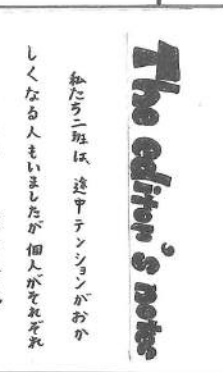 The editor's notes
私たち二班は、途中テンションがおか
しくなる人もいましたが個人がそれぞれ